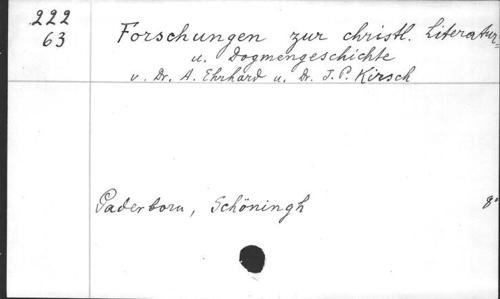 222
63
Forschungen zur christl. Literatur=
u. Dogmengeschichte
v. Dr. A. Ehrhard u. Dr. J. P. Kirsch
Paderborn, Schöningh 8°